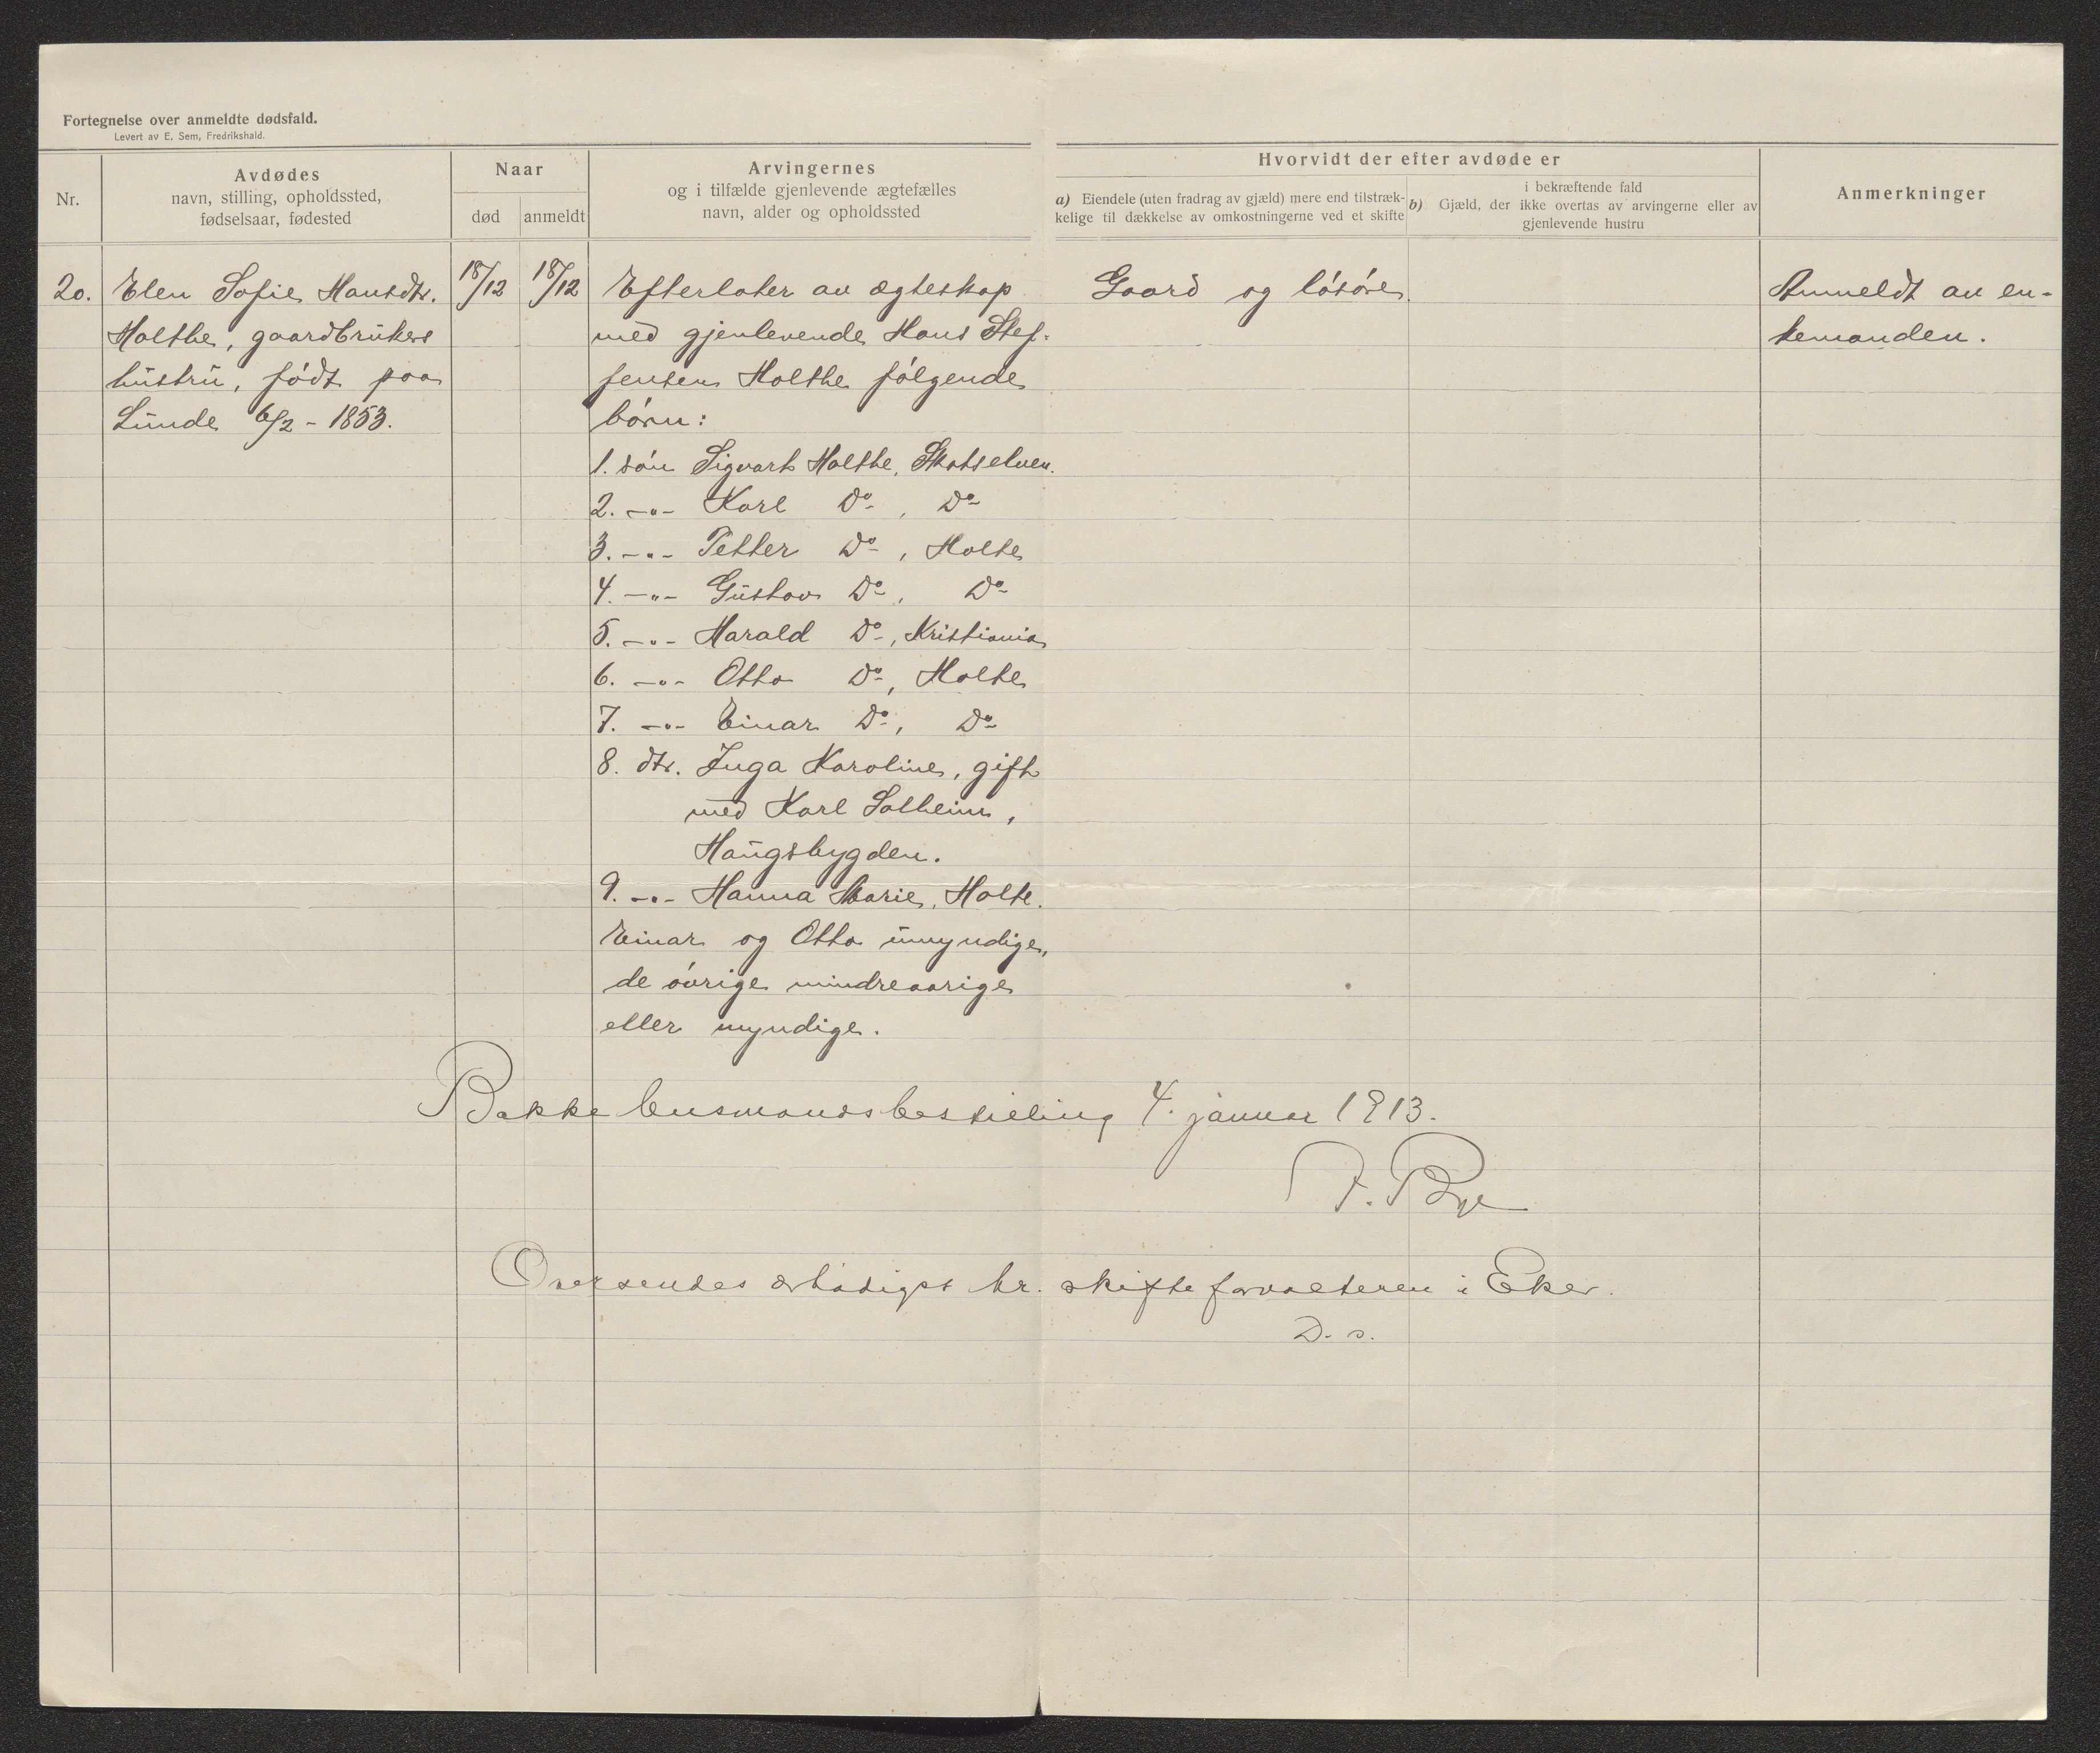 Fortegnelse over anmeldte dødsfald.
Levert av E. Sem, Fredrikshald.
Nr.
Avdødes
navn, stilling, opholdssted,
fødselsaar, fødested
Naar
død
anmeldt
Arvingernes
og i tilfælde gjenlevende ægtefælles
navn, alder og opholdssted
Hvorvidt der efter avdøde er
a) Eiendele (uten fradrag av gjæld) mere end tilstræk-
kelige til dækkelse av omkostningerne ved et skifte
i bekræftende fald
b) Gjæld, der ikke overtas av arvingerne eller av
gjenlevende hustru
Anmerkninger
20.
Elen Sofie Hansdtr.
Holthe, gaardbrukers
hustru, født paa
Lunde 6/2 - 1853.
18/12
18/12
Efterlater av ægteskap
med gjenlevende Hans Stef-
fensen Holthe følgende
børn:
1. søn Sigvart Holthe, Skotselven.
2. -"- Karl Do, Do
3. -"- Petter Do, Holte
4. -"- Gustav Do, Do
5. -"- Harald Do, Kristiania
6. -"- Otto Do, Holte
7. -"- Einar Do, Do
8. dtr. Inga Karoline, gift
med Karl Solheim,
Haugsbygden.
9. -"- Hanna Marie, Holte.
Einar og Otto umyndige,
de øvrige mindreaarige
eller myndige.
Gaard og løsøre.
Anmeldt av en-
kemanden.
Bakke lensmandsbestilling 4. januar 1913.
F. Bye
Oversendes ærbødigst hr. skifteforvalteren i Eker.
D. s.